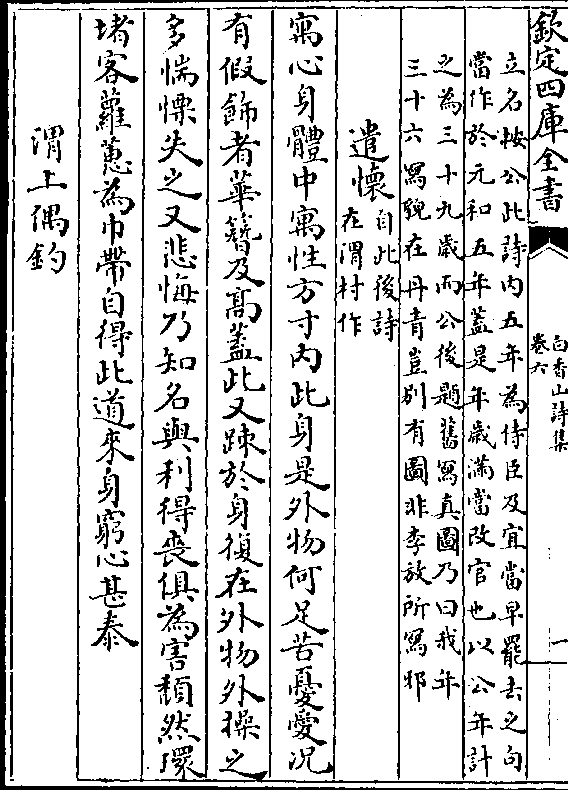 欽定四庫全書
白香山詩集
卷六
一
立名按公此詩内五年為侍臣及宜當早罷去之句
當作於元和五年蓋是年歲滿當改官也以公年計
之為三十九歲而公後題舊寫真圖乃曰我年
三十六寫貌在丹青豈别有圖非李放所寫邪
遣懐自此後詩
在渭村作
寓心身體中寓性方寸内此身是外物何足苦憂愛况
有假飾者華簪及髙蓋此又踈於身復在外物外操之
多惴慄失之又悲悔乃知名與利得喪俱為害頽然環
堵客蘿蕙為巾帶自得此道來身窮心甚泰
渭上偶釣